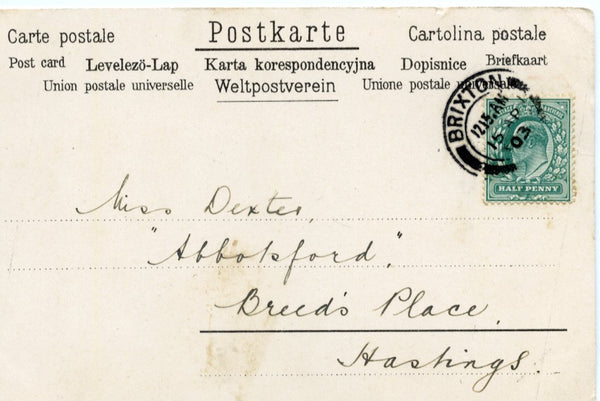 Carte postale Postkarte Cartolina postale
Post card Levelezö-Lap Karta korespondencyjna Dopisnice Briefkaart
Union postale universelle Weltpostverein Unione postale universale
BRIXTON
12.15.AM
03
HALF PENNY
Miss Dexter,
"Abbotsford,"
Breeds Place,
Hastings.